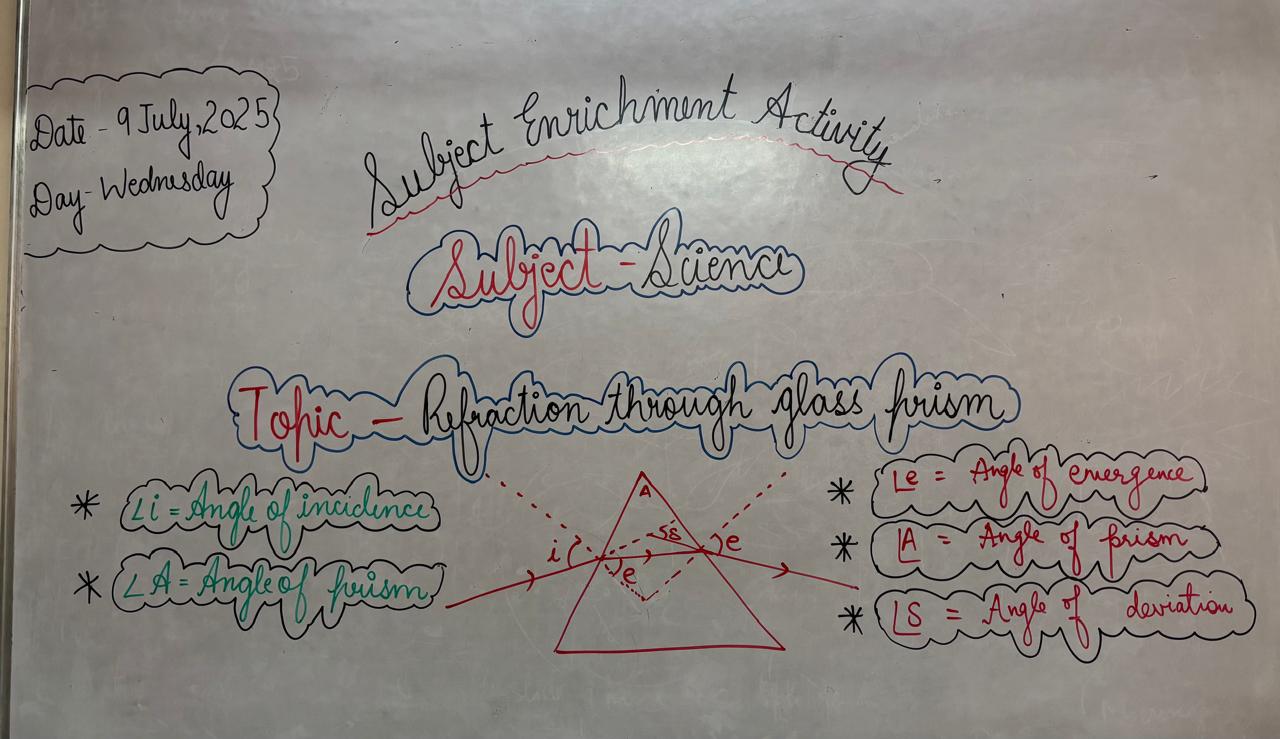 Date - 9 July, 2025
Day - Wednesday
Subject Enrichment Activity
Subject - Science
Topic - Refraction through glass prism
* ∠i = Angle of incidence
* ∠A = Angle of prism
A
i
e
δ
e
* ∠e = Angle of emergence
* ∠A = Angle of prism
* ∠δ = Angle of deviation